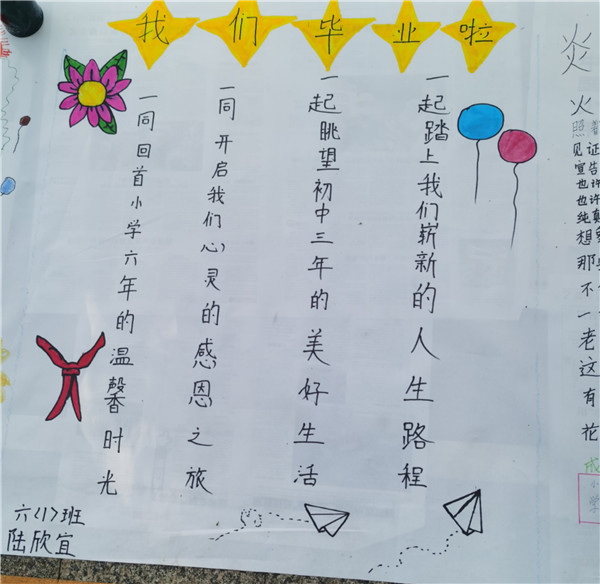 我们毕业啦
一同回首小学六年的温馨时光
一同开启我们心灵的感恩之旅
一起眺望初中三年的美好生活
一起踏上我们崭新的人生路程
六(1)班
陆欣宜
炎
火
照着
见证
宣告
也许
也许
纯真
想
那
不
一
老
这
有
花
成
小学